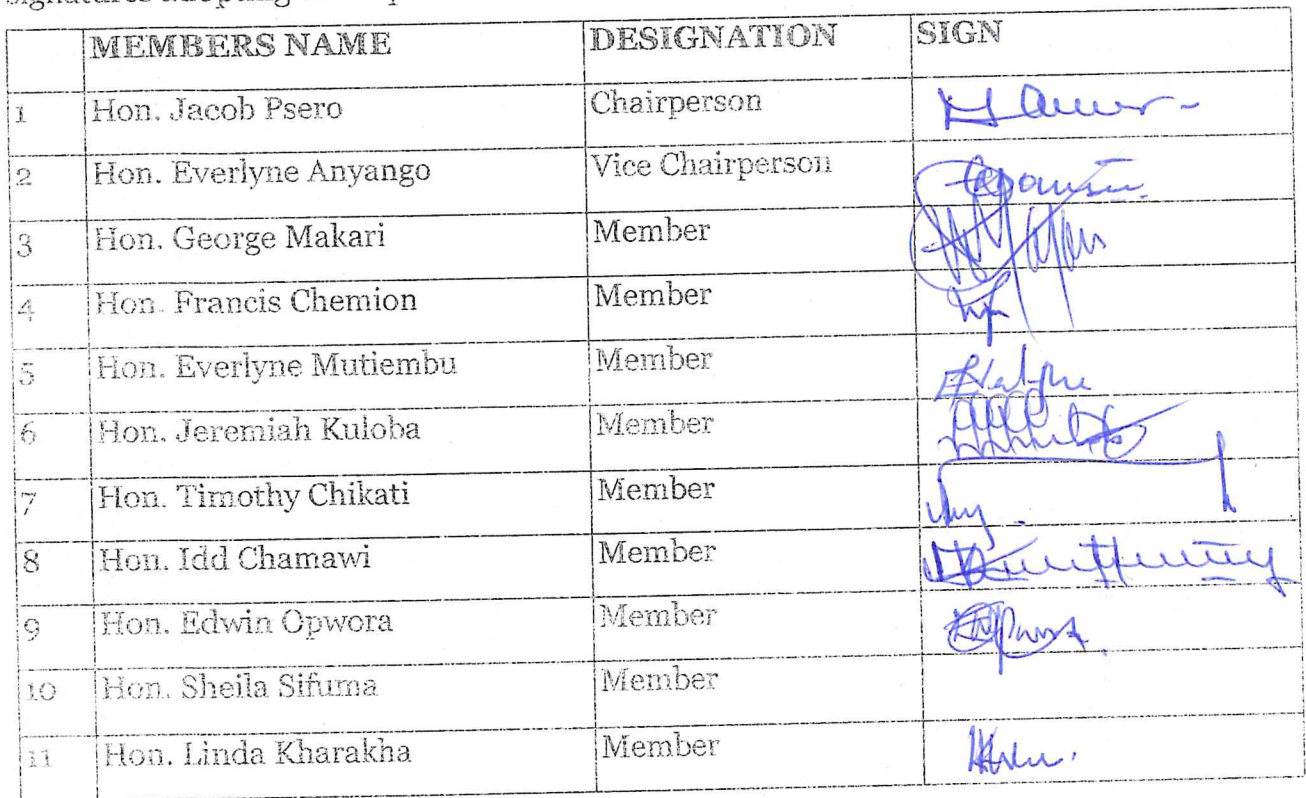 signatures adopting
MEMBERS NAME DESIGNATION SIGN
1 Hon. Jacob Psero Chairperson
2 Hon. Everlyne Anyango Vice Chairperson
3 Hon. George Makari Member
4 Hon. Francis Chemion Member
5 Hon. Everlyne Mutiembu Member
6 Hon. Jeremiah Kuloba Member
7 Hon. Timothy Chikati Member
8 Hon. Idd Chamawi Member
9 Hon. Edwin Opwora Member
10 Hon. Sheila Sifuma Member
11 Hon. Linda Kharakha Member